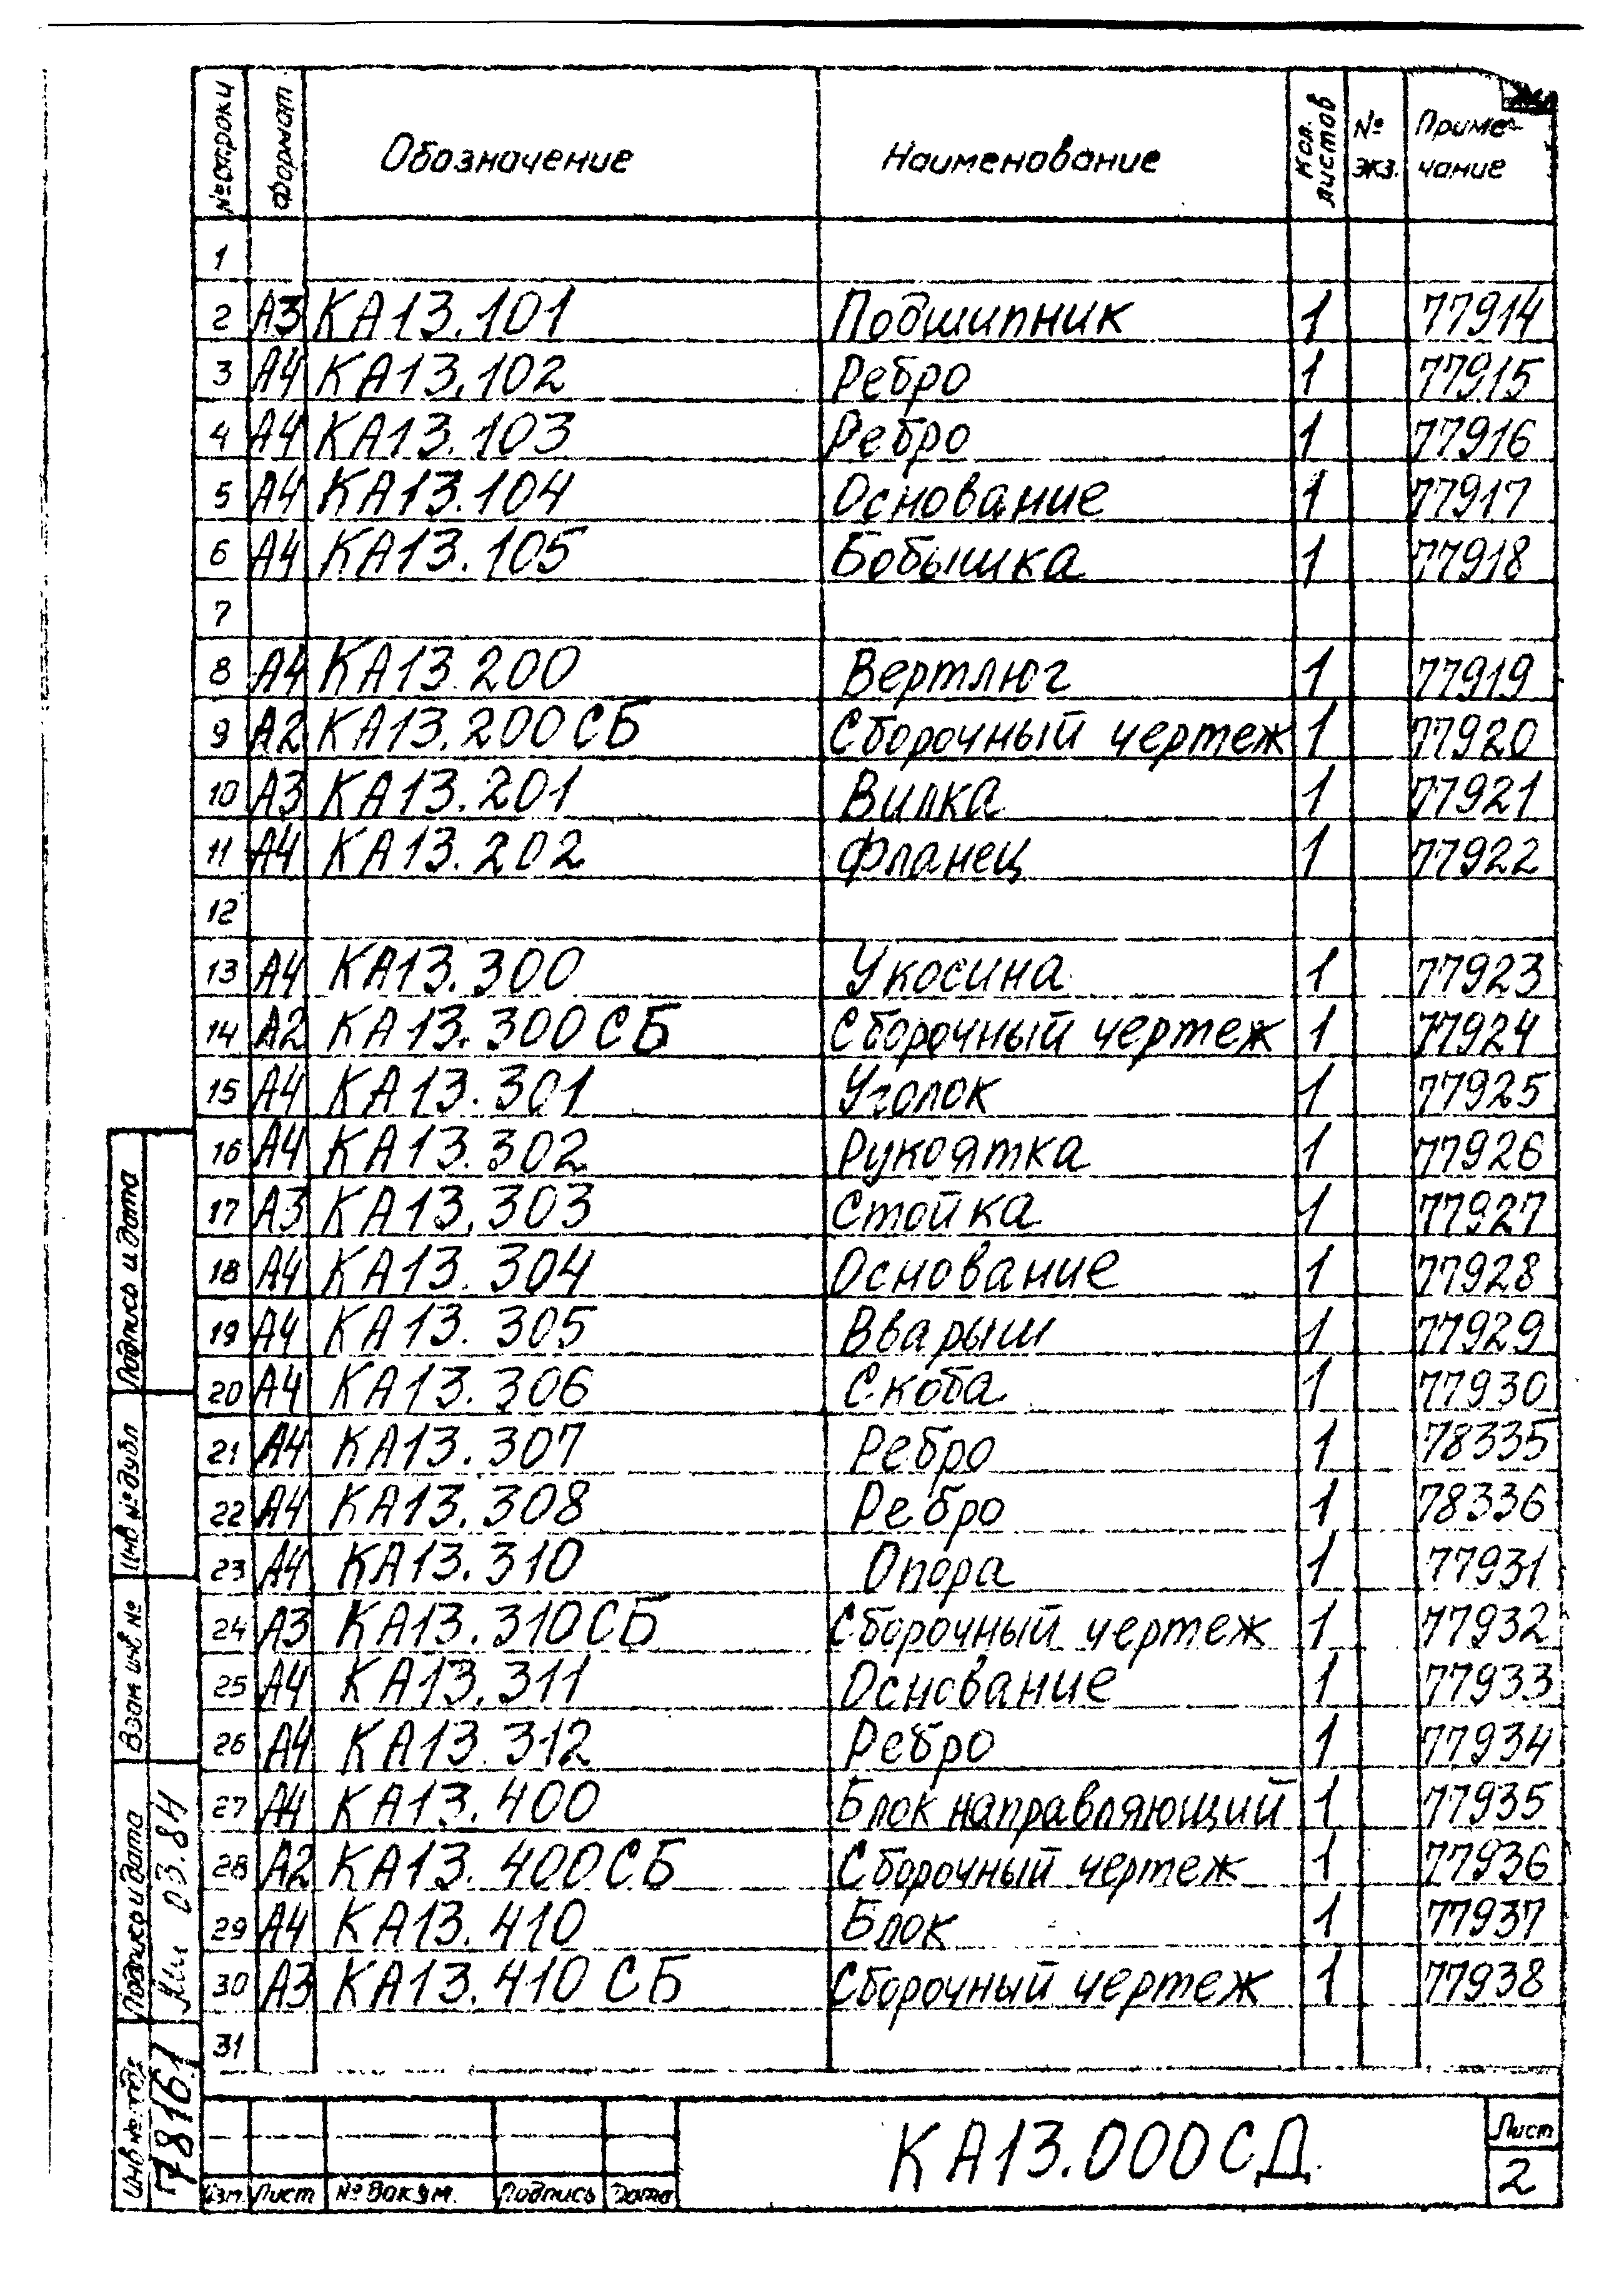 № строки Формат Обозначение Наименование Кол. листов № экз. Примечание
1
2 А3 КА13.101 Подшипник 1 77914
3 А4 КА13.102 Ребро 1 77915
4 А4 КА13.103 Ребро 1 77916
5 А4 КА13.104 Основание 1 77917
6 А4 КА13.105 Бобышка 1 77918
7
8 А4 КА13.200 Вертлюг 1 77919
9 А2 КА13.200СБ Сборочный чертеж 1 77920
10 А3 КА13.201 Вилка 1 77921
11 А4 КА13.202 Фланец 1 77922
12
13 А4 КА13.300 Укосина 1 77923
14 А2 КА13.300СБ Сборочный чертеж 1 77924
15 А4 КА13.301 Уголок 1 77925
16 А4 КА13.302 Рукоятка 1 77926
17 А3 КА13.303 Стойка 1 77927
18 А4 КА13.304 Основание 1 77928
19 А4 КА13.305 Вварыш 1 77929
20 А4 КА13.306 Скоба 1 77930
21 А4 КА13.307 Ребро 1 78335
22 А4 КА13.308 Ребро 1 78336
23 А4 КА13.310 Опора 1 77931
24 А3 КА13.310СБ Сборочный чертеж 1 77932
25 А4 КА13.311 Основание 1 77933
26 А4 КА13.312 Ребро 1 77934
27 А4 КА13.400 Блок направляющий 1 77935
28 А2 КА13.400СБ Сборочный чертеж 1 77936
29 А4 КА13.410 Блок 1 77937
30 А3 КА13.410 СБ Сборочный чертеж 1 77938
31
Подпись и дата
Инв № дубл
Взам инв №
Подпись и дата 03.84
Инв № подл. 78161
Изм. Лист № докум. Подпись Дата
КА13.000СД
Лист
2